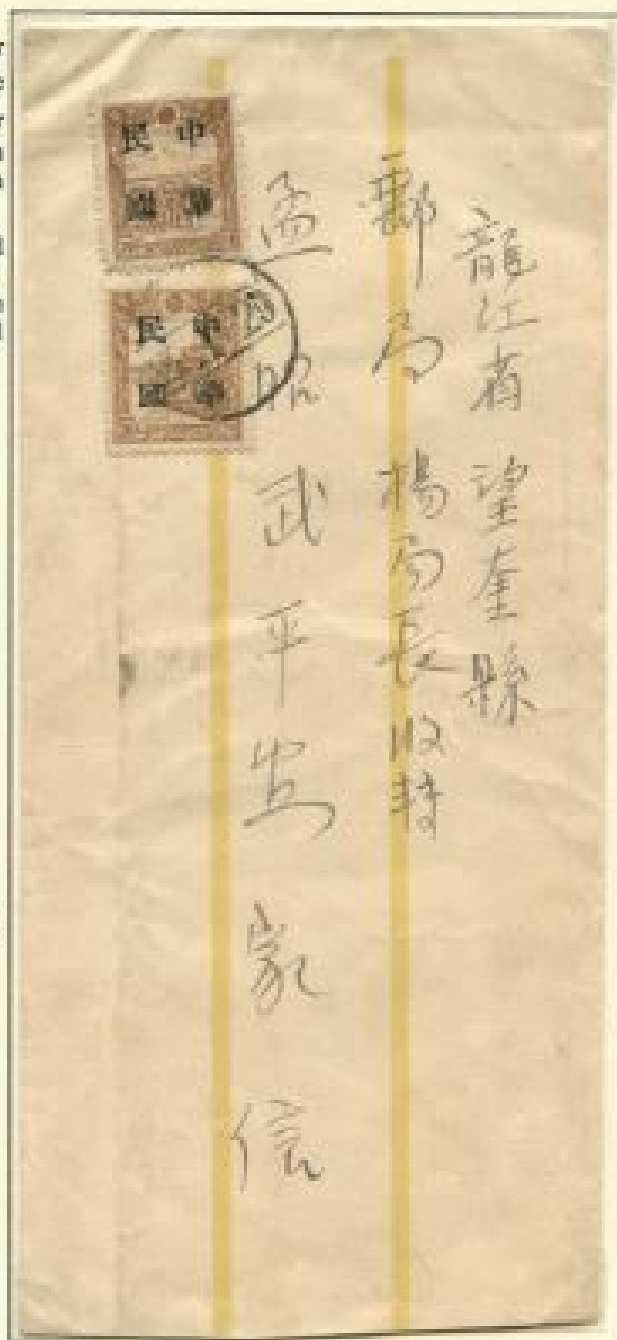 龍江省望奎縣
郵局楊局長收轉
孟昭武平安家信
中華民國
中華民國